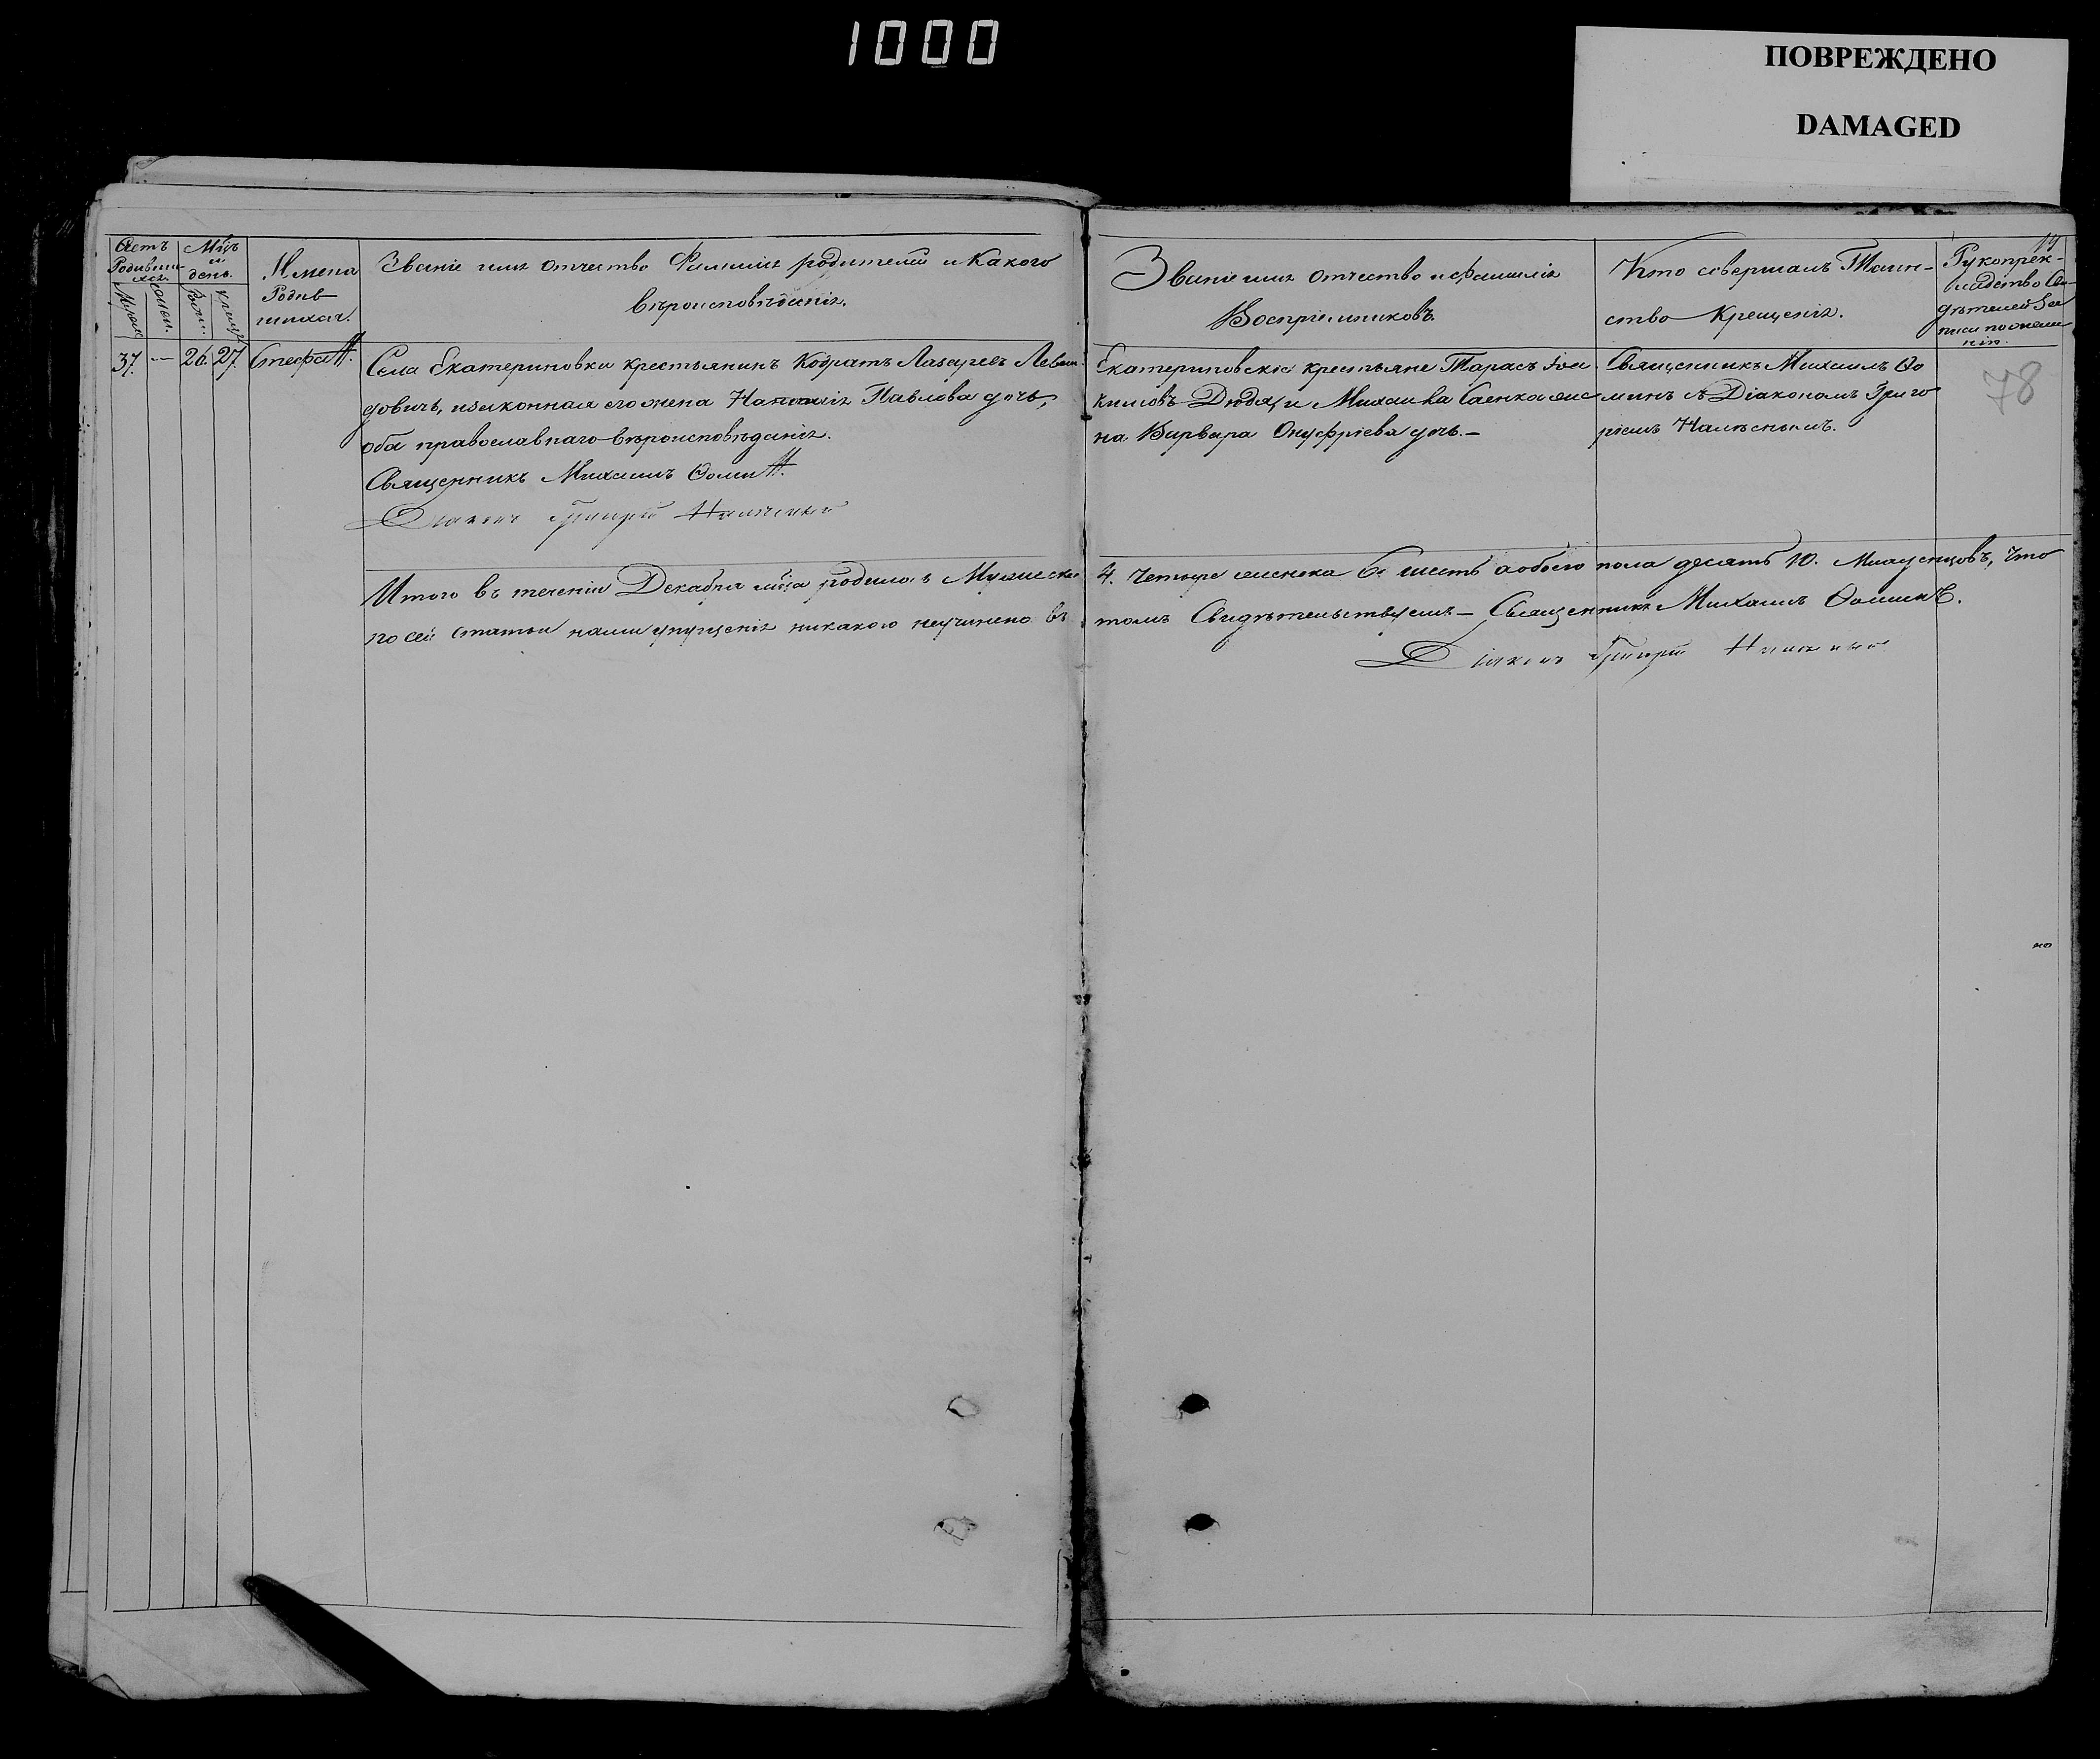 1000
ПОВРЕЖДЕНО
DAMAGED
Счетъ Родившихся
Мцъ и день.
Имена Родившихся.
Званіе имя отчество Фамилія родителей и Какого
вѣроисповѣданія.
Званіе имя отчество и фамилія
Воспріемниковъ.
Кто совершалъ Таин-
ство Крещенія.
37. — 26. 27. Стефан.
Села Екатериновки крестьянинъ Кодратъ Лазаревъ
довичъ, изаконная его жена Наталія Павлова дочь,
оба православнаго вѣроисповѣданія.
Священникъ Михаилъ Ѳомин.
Діаконъ Григорій
Екатериновскіе крестьяне Тарасъ Іоа
кимовъ Дюдя, и Михаила Саенка же
на Варвара Онуфріева дочь.—
Священникъ Михаилъ Ѳо
минъ съ Діакономъ Григо
ріемъ
78
Итого въ теченіи Декабря мца родилось Мужеска
4. четыре женска 6. шесть а обоего пола десять 10. Младенцовъ, что
по сей статьи нами упущенія никакого неучинено въ
томъ Свидѣтельствуемъ— Священникъ Михаилъ Ѳоминъ.
Діаконъ Григорій